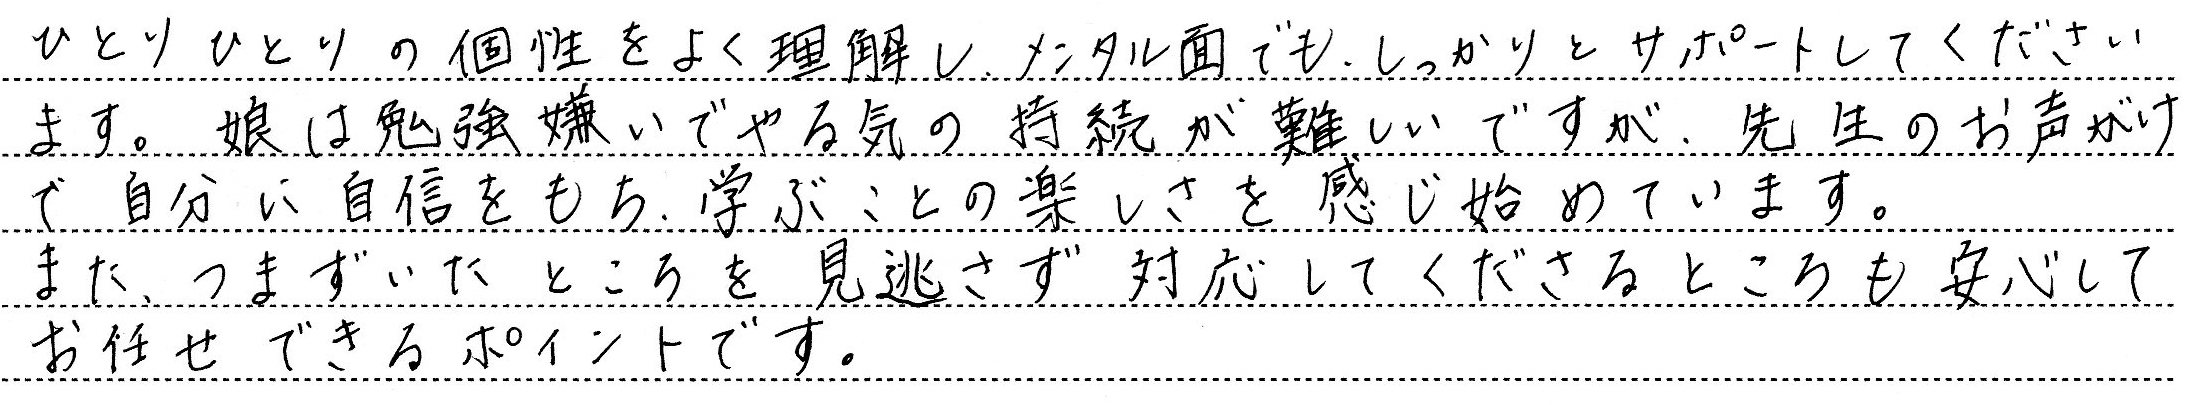 ひとりひとりの個性をよく理解し、メンタル面でも、しっかりとサポートしてください
ます。娘は勉強嫌いでやる気の持続が難しいですが、先生のお声がけ
で自分に自信をもち、学ぶことの楽しさを感じ始めています。
また、つまずいたところを見逃さず対応してくださるところも安心して
お任せできるポイントです。